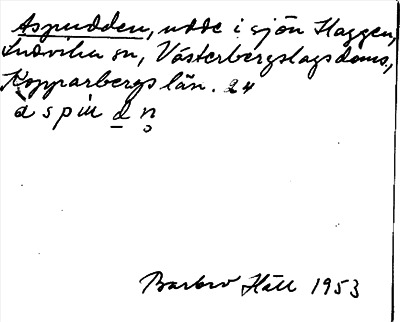 Aspudden, udde i sjön Haggen,
Ludvika sn, Västerbergslags doms.,
Kopparbergs län. 24
à s p ʉ d n̥
Barbro Häll 1953